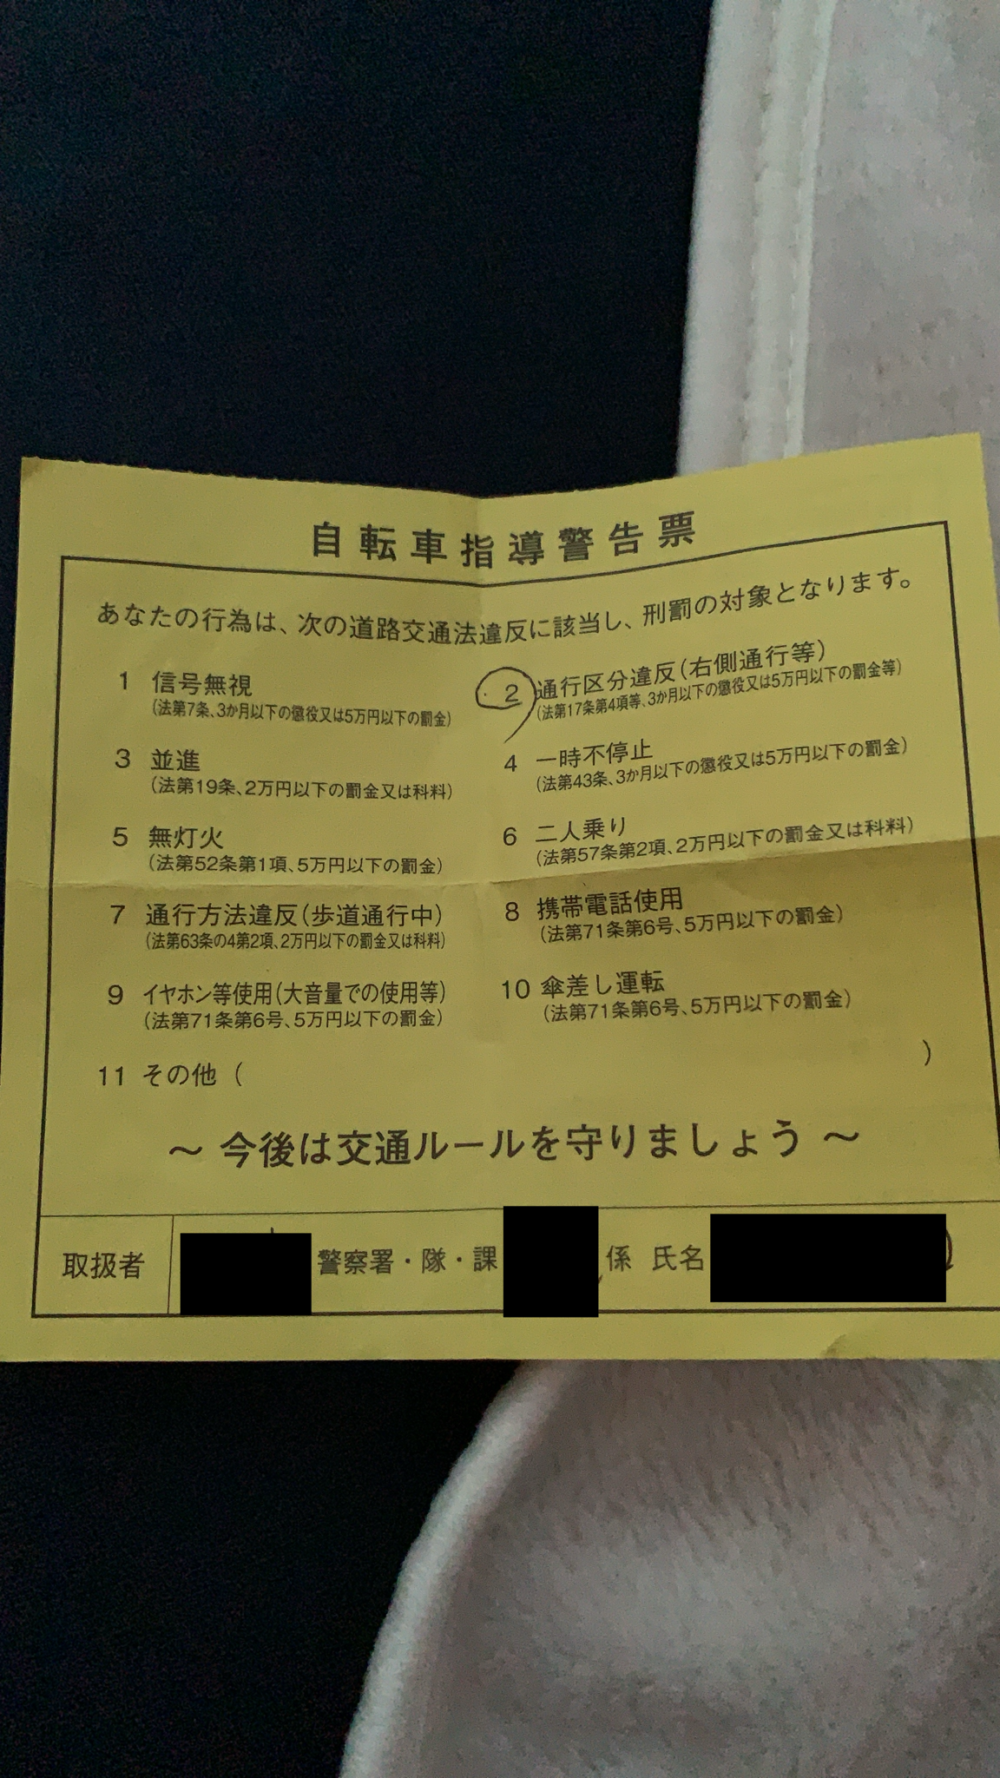 自転車指導警告票
あなたの行為は、次の道路交通法違反に該当し、刑罰の対象となります。
1 信号無視
(法第7条、3か月以下の懲役又は5万円以下の罰金)
2 通行区分違反(右側通行等)
(法第17条第4項等、3か月以下の懲役又は5万円以下の罰金等)
3 並進
(法第19条、2万円以下の罰金又は科料)
4 一時不停止
(法第43条、3か月以下の懲役又は5万円以下の罰金)
5 無灯火
(法第52条第1項、5万円以下の罰金)
6 二人乗り
(法第57条第2項、2万円以下の罰金又は科料)
7 通行方法違反(歩道通行中)
(法第63条の4第2項、2万円以下の罰金又は科料)
8 携帯電話使用
(法第71条第6号、5万円以下の罰金)
9 イヤホン等使用(大音量での使用等)
(法第71条第6号、5万円以下の罰金)
10 傘差し運転
(法第71条第6号、5万円以下の罰金)
11 その他( )
～ 今後は交通ルールを守りましょう ～
取扱者 警察署・隊・課 係 氏名